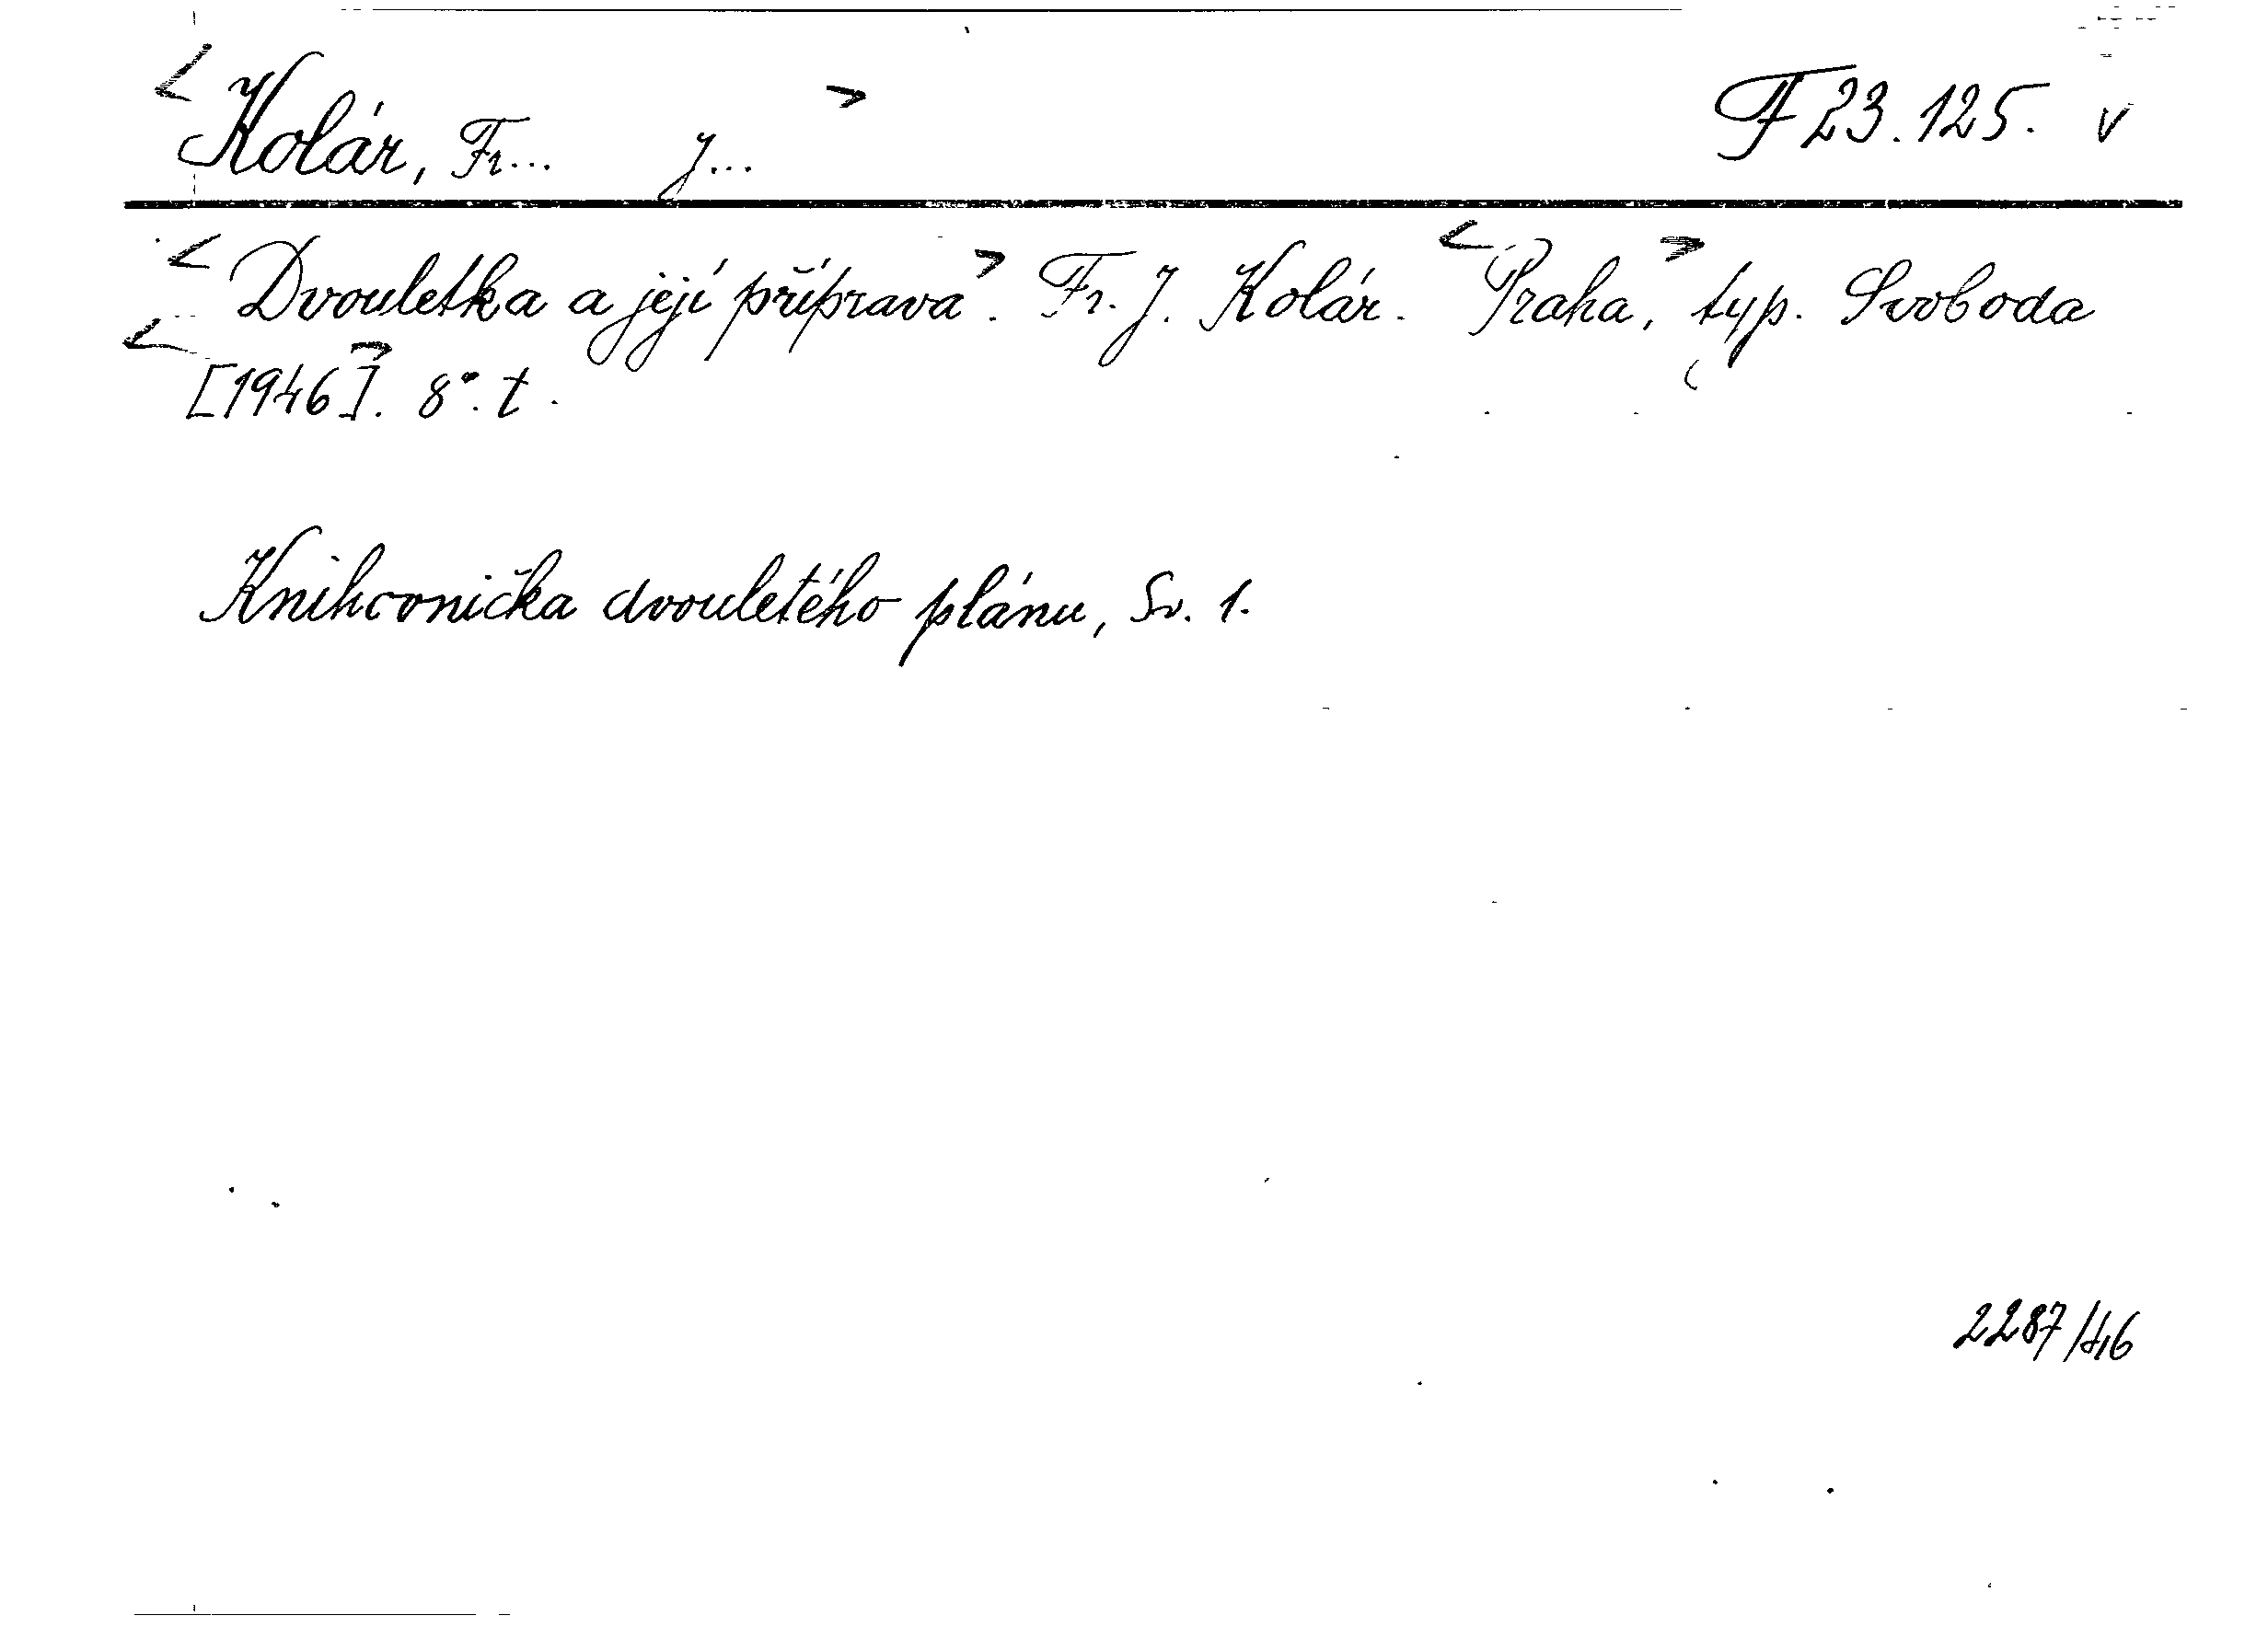 <Kolár, Fr... J...> F 23.125. v
<Dvouletka a její příprava>. Fr. J. Kolár. <Praha,> typ. Svoboda
<[1946]>. 8°. t.
Knihovnička dvouletého plánu, Sv. 1.
2287/46